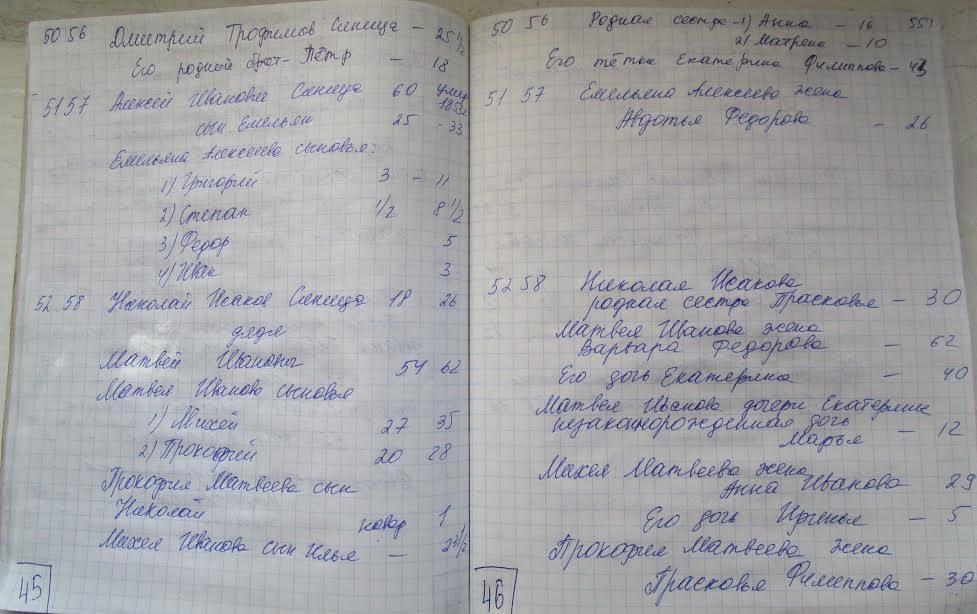 50 56 Дмитрий Трофимов Синица - 25 1/2
Его родной брат - Пётр - 18
51 57 Алексей Иванович Синица 60 умер
1853
сын Емельян 25 - 33
Емельяна Алексеева сыновья:
1) Григорий 3 - 11
2) Степан 1/2 8 1/2
3) Федор 5
4) Иван 3
52 58 Николай Исаков Синица 18 26
дядя
Матвей Иванович 54 62
Матвея Иванова сыновья
1) Михей 27 35
2) Прокофий 20 28
Прокофия Матвеева сын
Николай новор 1
Михея Иванова сын Илья - 2 1/2
45
50 56 Родная сестра - 1) Анна - 16 551
2) Матрена - 10
Его тётка Екатерина Филиппова - 43
51 57 Емельяна Алексеева жена
Авдотья Федорова - 26
52 58 Николая Исакова
родная сестра Прасковья - 30
Матвея Иванова жена
Варвара Федорова - 62
Его дочь Екатерина - 40
Матвея Иванова дочери Екатерины
незаконнорожденная дочь
Марья - 12
Михея Матвеева жена
Анна Иванова 29
Его дочь Иринья - 5
Прокофия Матвеева жена
Прасковья Филиппова - 30
46